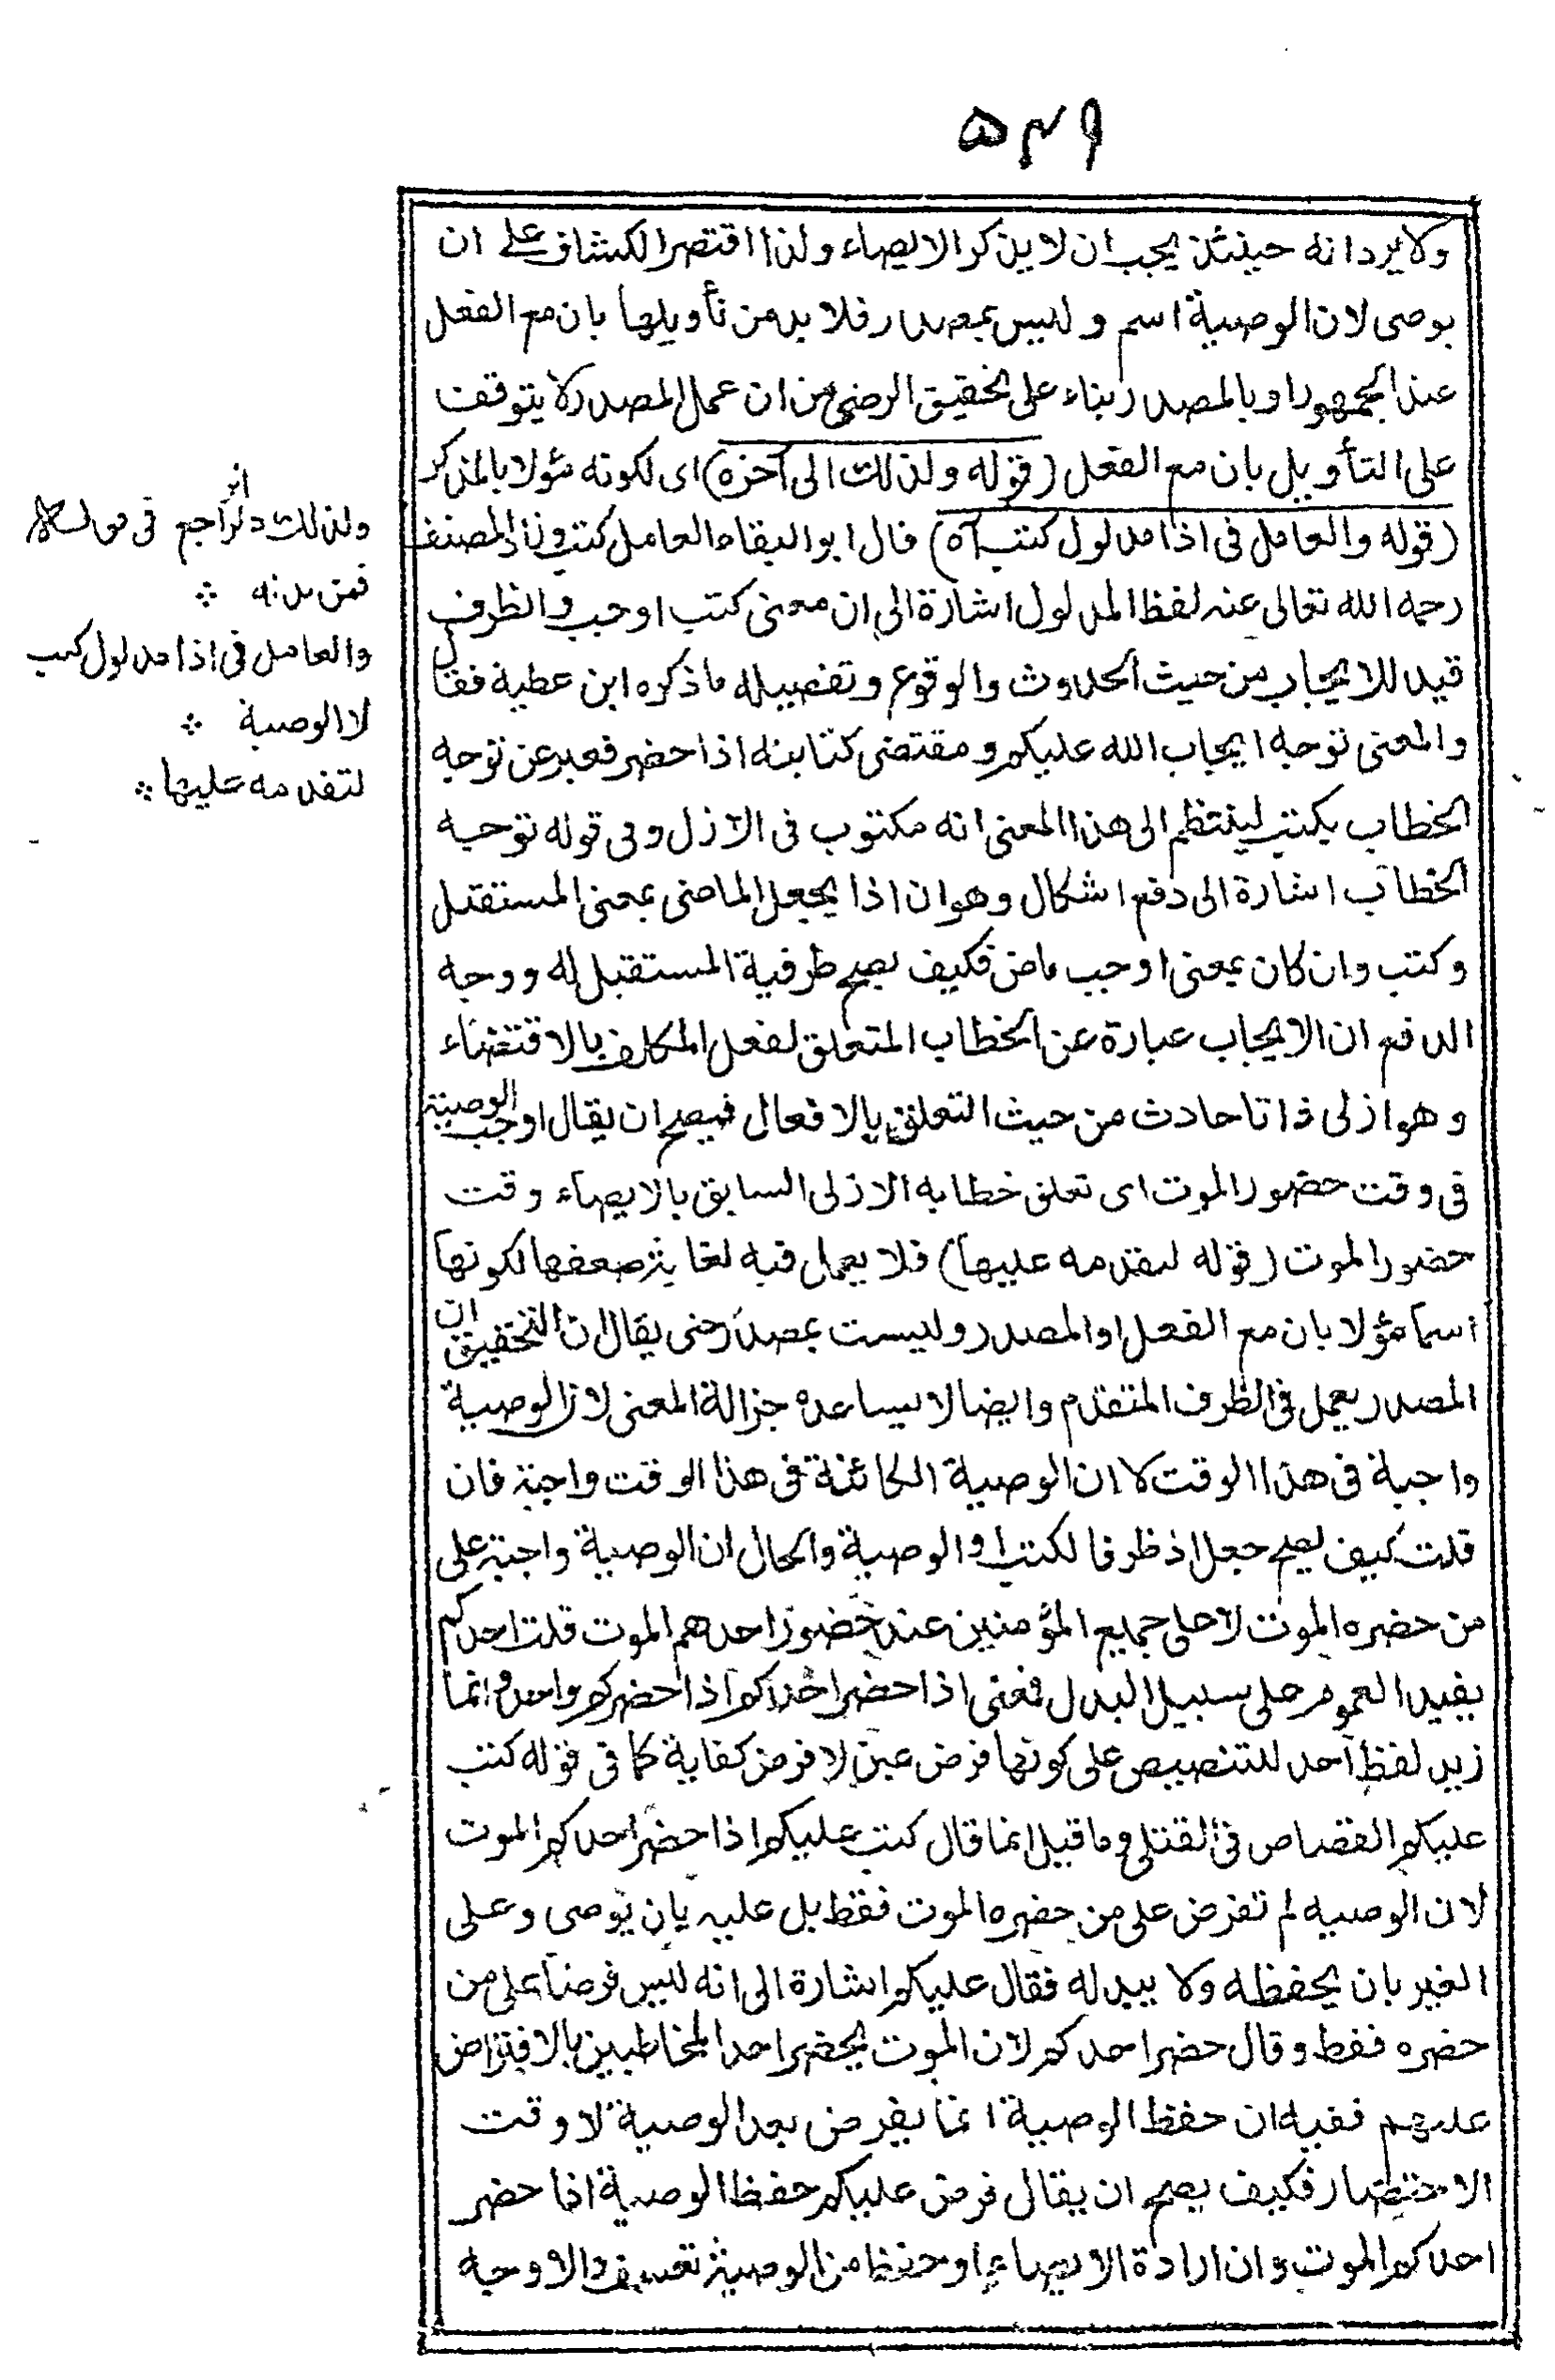 ٥٣٩
ولا يرد انه حينئذ يجب ان لا يذكر الايصاء ولذا اقتصر الكشاف على ان
يوصى لان الوصية اسم وليس بمصدر فلا بد من تأويلها بان مع الفعل
عند الجمهور او بالمصدر بناء على تحقيق الرضى من ان عمل المصدر لا يتوقف
على التأويل بان مع الفعل (قوله ولذلك الى آخره) اى لكونه مئولا بالمذكر
(قوله والعامل فى اذا مدلول كتب آه) قال ابو البقاء العامل كتب وزاد المصنف
رحمه الله تعالى عنه لفظ المدلول اشارة الى ان معنى كتب اوجب والظرف
قيد للايجاب من حيث الحدوث والوقوع وتفصيله ما ذكره ابن عطية فقال
والمعنى توجه ايجاب الله عليكم ومقتضى كتابنه اذا حضر فعبر عن توجه
الخطاب بكتب لينتظم الى هذا المعنى انه مكتوب فى الازل وفى قوله توجه
الخطاب اشارة الى دفع اشكال وهو ان اذا يجعل الماضى بمعنى المستقبل
وكتب وان كان بمعنى اوجب ماض فكيف يصح ظرفية المستقبل له ووجه
الدفع ان الايجاب عبارة عن الخطاب المتعلق لفعل المكلف بالاقتضاء
وهو ازلى ذاتا حادث من حيث التعلق بالافعال فيصح ان يقال اوجب الوصية
فى وقت حضور الموت اى تعلق خطابه الازلى السابق بالايصاء وقت
حضور الموت (قوله لتقدمه عليها) فلا يعمل فيه لغاية ضعفها لكونها
اسما مؤلا بان مع الفعل او المصدر وليست بمصدر حتى يقال ان التحقيق ان
المصدر يعمل فى الظرف المتقدم وايضا لا يساعده جزالة المعنى لان الوصية
واجبة فى هذا الوقت لا ان الوصية الكائنة فى هذا الوقت واجبة فان
قلت كيف يصح جعل اذ ظرفا لكتب او الوصية والحال ان الوصية واجبة على
من حضره الموت لا على جميع المؤمنين عند حضور احدهم الموت قلت احدكم
يفيد العموم على سبيل البدل فمعنى اذا حضر احدكم اذا حضركم واحد وانما
زيد لفظ احد للتنصيص على كونها فرض عين لا فرض كفاية كما فى قوله كتب
عليكم القصاص فى القتلى وما قيل انما قال كتب عليكم اذا حضر احدكم الموت
لان الوصيه لم تفرض على من حضره الموت فقط بل عليه بان يوصى وعلى
الغير بان يحفظه ولا يبدله فقال عليكم اشارة الى انه ليس فرضا على من
حضره فقط وقال حضر احدكم لان الموت يحضر احد المخاطبين بالافتراض
عليهم ففيه ان حفظ الوصية انما يفرض بعد الوصية لا وقت
الاحتضار فكيف يصح ان يقال فرض عليكم حفظ الوصية اذا حضر
احدكم الموت وان ارادة الايصاء او حفظ من الوصية تعسف والاوجه
ولذلك ذكر الراجع فى قوله
فمن بدله ؞
والعامل فى اذا مدلول كتب
لا الوصية ؞
لتقدمه عليها ؞